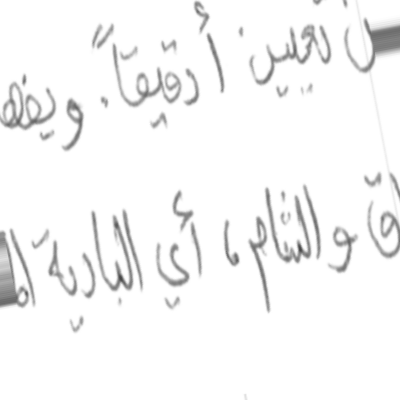 تعيين أ دقيقاً. ويظه
ق والشام، أي البادية الم